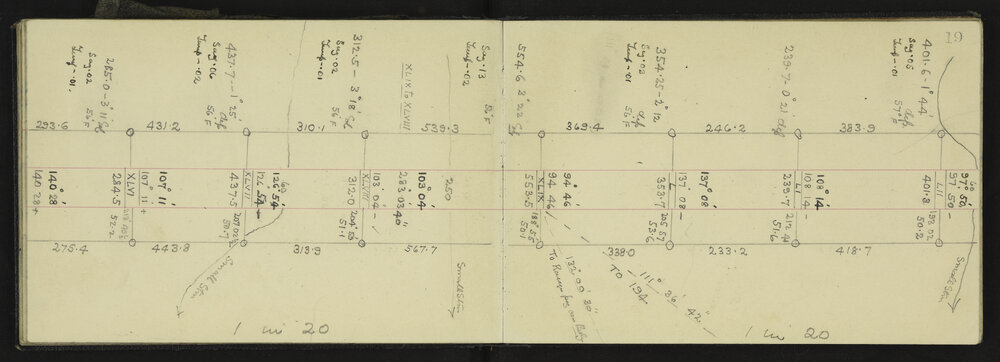 19
285.0 - 3° 11'
Sag .02
Temp - .01
56°F
437.7 - 1° 25'
Sag .06
Temp - .02
56°F
312.5 - 3° 18'
Sag .02
Temp - .01
56°F
XLIX to XLVIII
Sag .13
Temp - .02
56°F
554.6 3° 22'
354.25 - 2° 12
Sag .03
Temp - .01
56°F
239.7 - 0° 21'
Temp - .01
401.6 - 1° 44'
Sag .05
Temp - .01
57°F
293.6
431.2
310.1
539.3
369.4
246.2
383.9
140° 28'
140 28 +
XLVI
284.5
52.2
107° 11'
107 11 +
XLVII
437.5
50.7
126° 54'
126 54
XLVIII
312.0
51.1
103° 04'
283° 03' 40"
103 04 -
250
XLIX
553.5
188.55
50.1
94° 46'
94 46
353.7
205 57
53.6
137° 08'
137 08 -
LI
239.7
212 44
51.6
108° 14'
108 14 -
LII
401.8
50.2
97° 50'
97 50 -
275.4
443.8
318.9
567.7
338.0
233.2
418.7
Small Stm
Small Stm
Small Stm
TO 194
111° 36' 42"
132° 09' 30"
1 in 20
1 in 20